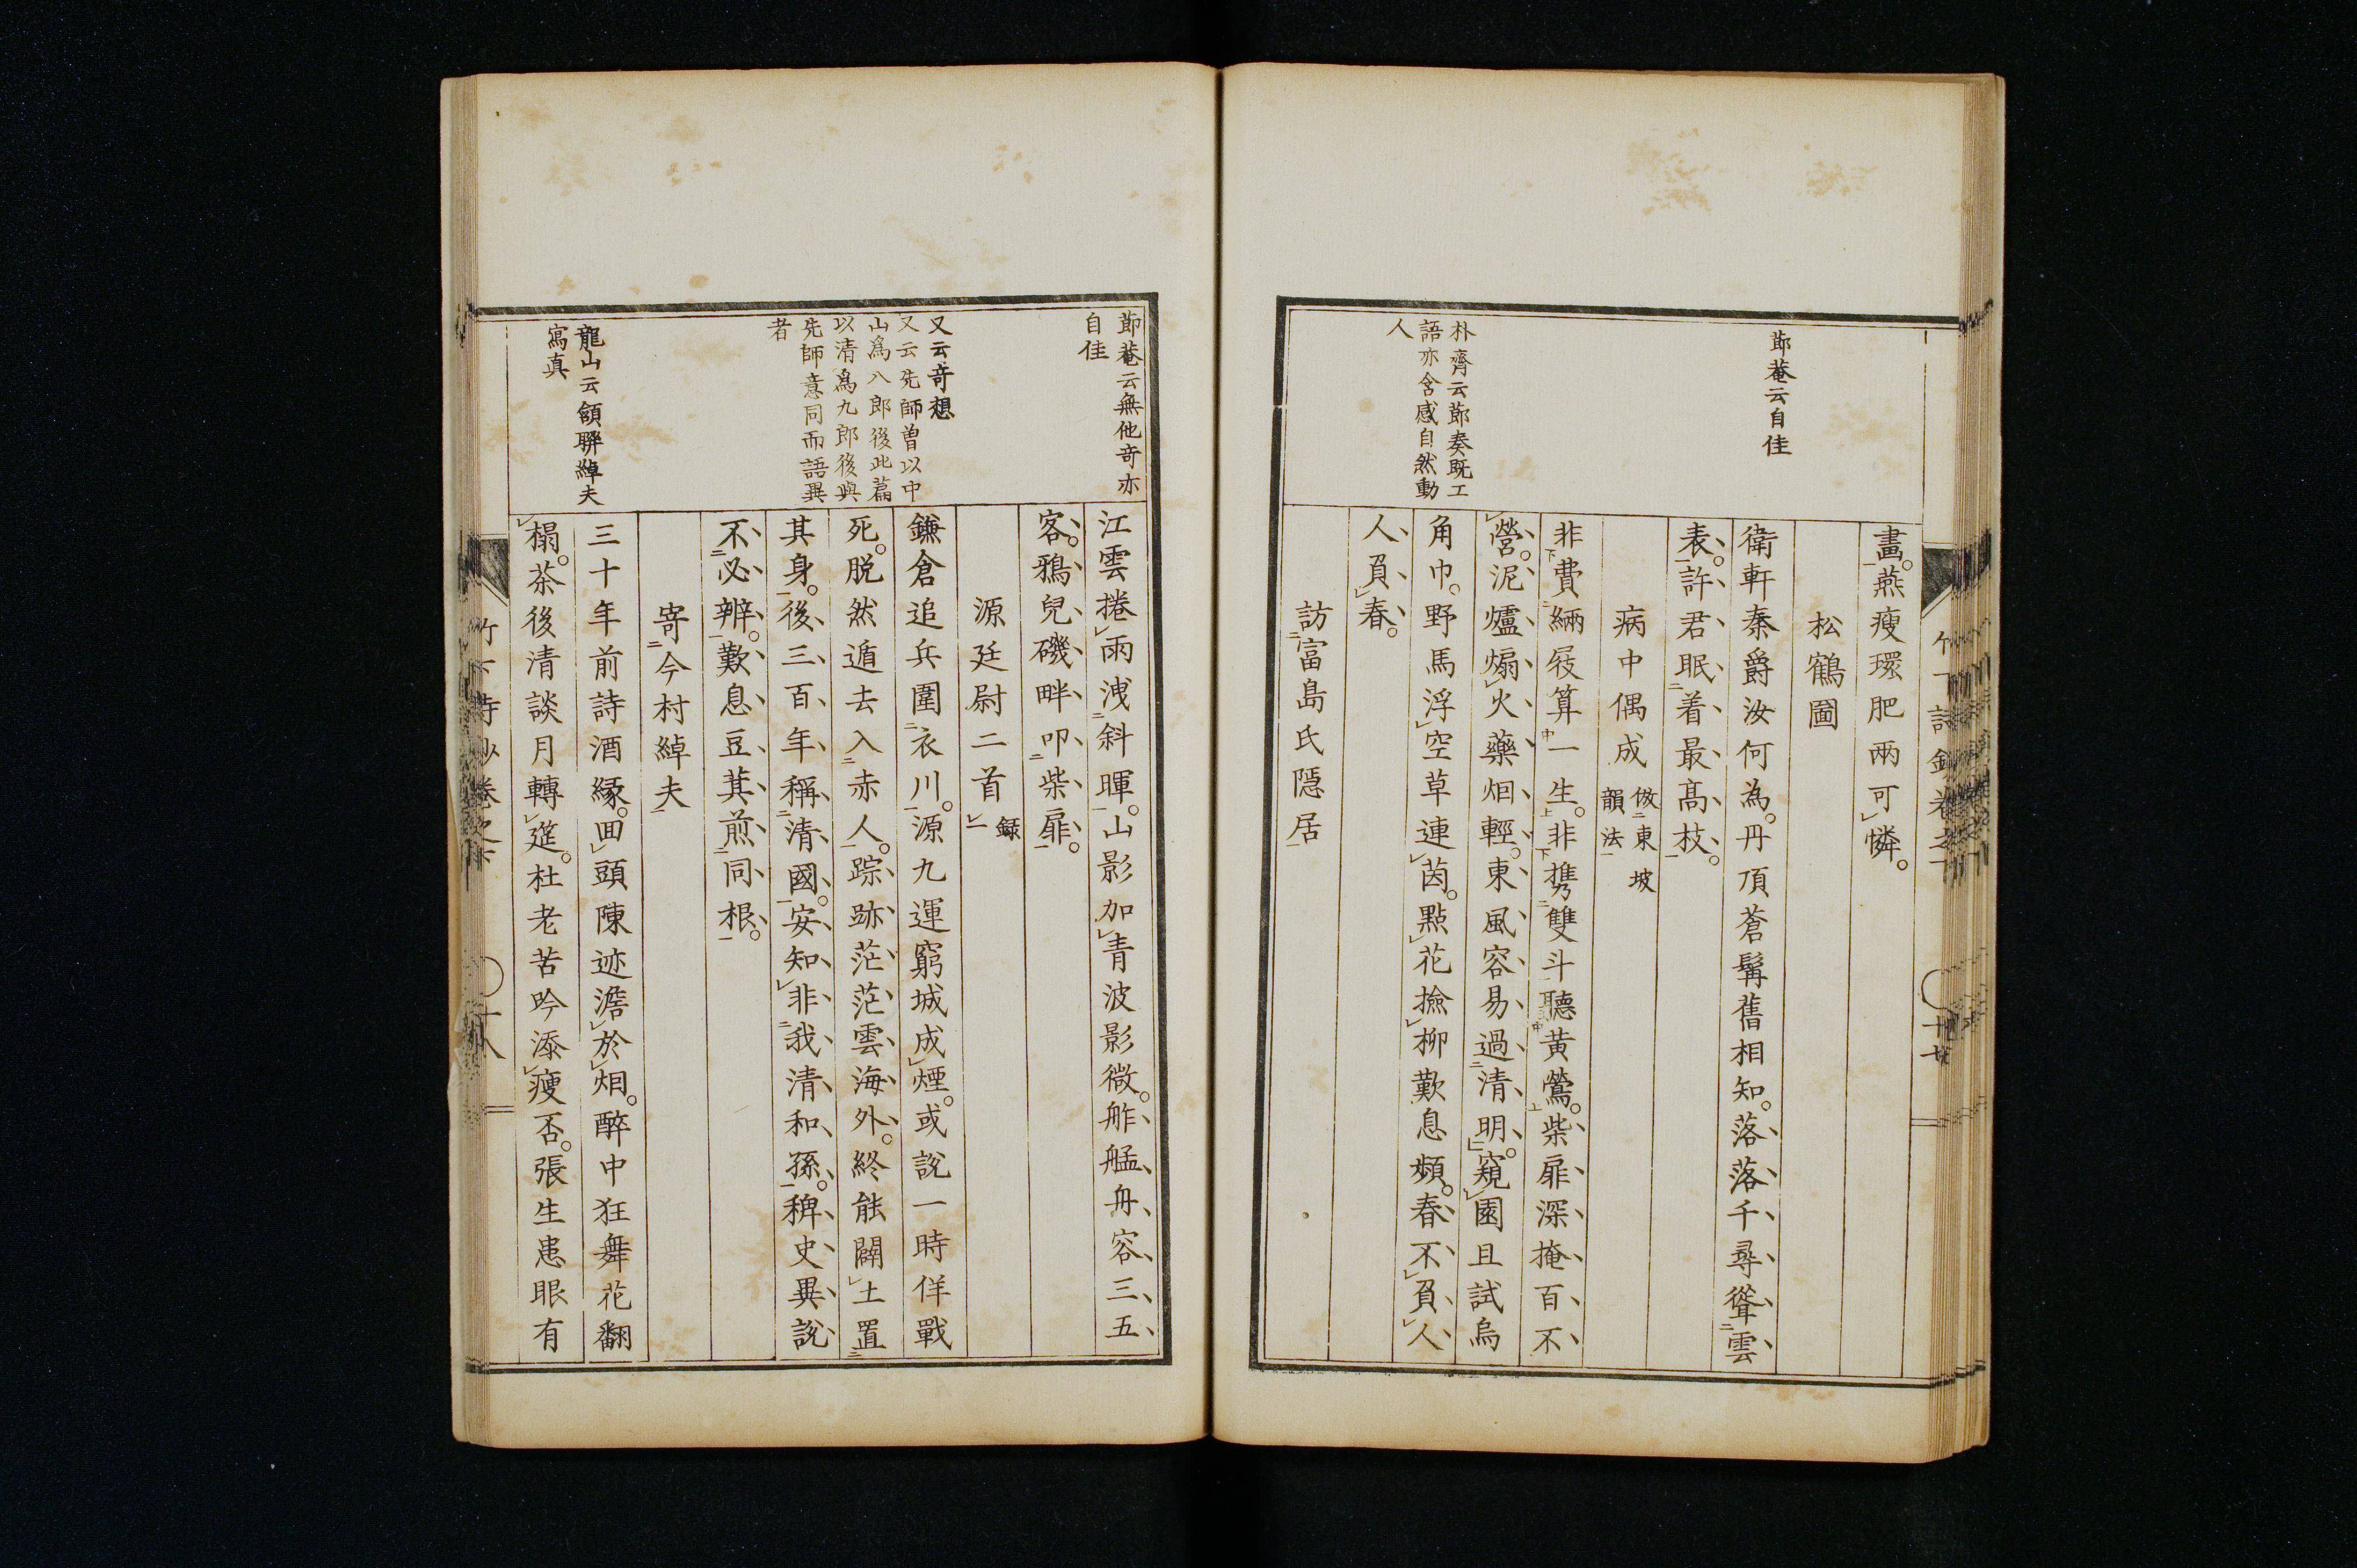 節菴云自佳
朴齋云節奏既工
語亦含感自然動
人
畫。燕瘦環肥兩可憐。
松鶴圖
衛軒秦爵汝何為。丹頂蒼髯舊相知。落落千尋聳雲
表。許君眠着最高枝。
病中偶成
倣東坡
韻法
非費緉屐算一生。非携雙斗聽黃鶯。柴扉深掩百不
營。泥爐煽火藥烟輕。東風容易過清明。窺園且試烏
角巾。野馬浮空草連茵。點花撿柳歎息頻。春不負人
人負春。
訪富島氏隱居
節菴云無他奇亦
自佳
又云奇想
又云先師曽以中
山爲八郎後此篇
以清爲九郎後與
先師意同而語異
者
龍山云頷聯綽夫
寫真
江雲捲雨洩斜暉。山影加青波影微。舴艋舟容三五
客。鴉兒磯畔叩柴扉。
源廷尉二首
録
一
鎌倉追兵圍衣川。源九運窮城成煙。或說一時佯戰
死。脱然遁去入赤人。踪跡茫茫雲海外。終能闢土置
其身。後三百年稱清國。安知非我清和孫。稗史異說
不必辨。歎息豆萁煎同根。
寄今村綽夫
三十年前詩酒緣。回頭陳迹澹於烟。醉中狂舞花翻
榻。茶後清談月轉筵。杜老苦吟添瘦否。張生患眼有